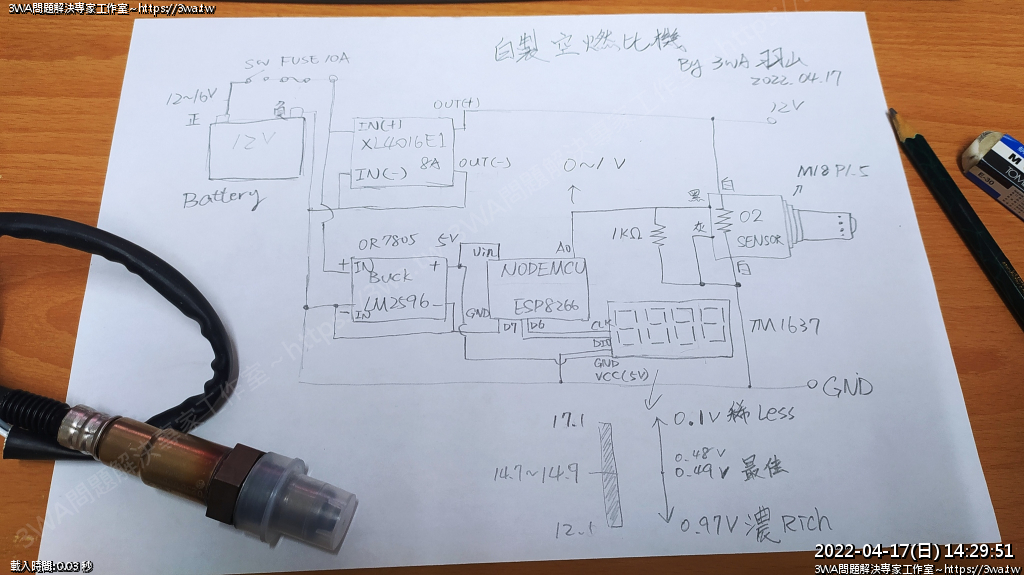 3WA問題解決專家工作室~https://3wa.tw
3WA問題解決專家工作室~https://3wa.tw
自製空燃比機
By 3WA 羽山
2022.04.17
SW FUSE 10A
12~16V
正
負
12V
Battery
IN(+)
XL4016E1
IN(-) 8A
OUT(+)
OUT(-)
12V
0~1V
M18 P1.5
黑
白
灰
白
O2
SENSOR
1KΩ
OR 7805
5V
+ IN +
Buck
LM2596
- IN -
Vin
A0
NODEMCU
ESP8266
GND
D7
D6
CLK
DIO
GND
VCC(5V)
TM1637
GND
17.1
14.7~14.9
12.1
0.1V 稀 Less
0.48V
0.49V 最佳
0.97V 濃 Rich
3WA問題解決專家工作室~https://3wa.tw
載入時間: 0.03 秒
2022-04-17(日) 14:29:51
3WA問題解決專家工作室~https://3wa.tw